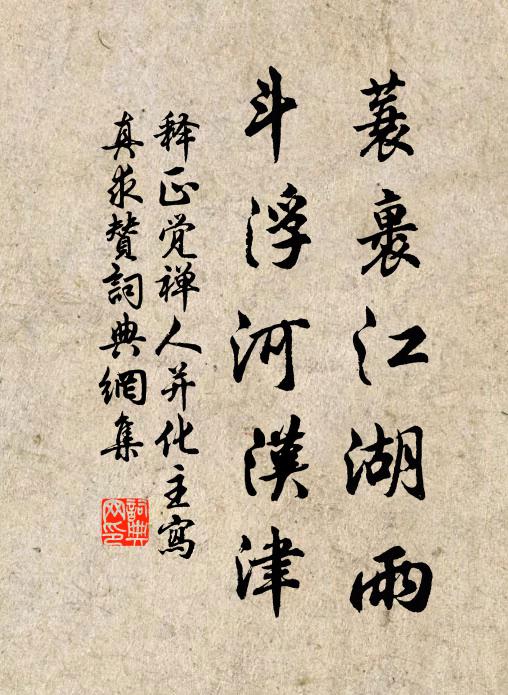 蓑裹江湖雨
斗浮河漢津
释正觉禅人并化主寫
真求贊詞典網集
詞典网印